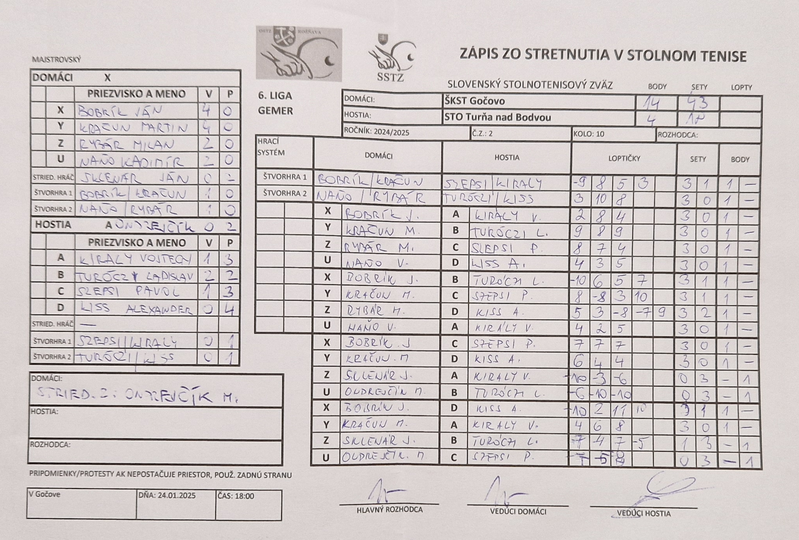 SSTZ
ZÁPIS ZO STRETNUTIA V STOLNOM TENISE
SLOVENSKÝ STOLNOTENISOVÝ ZVÄZ BODY SETY LOPTY
6. LIGA GEMER
DOMÁCI: ŠKST Gočovo 14 43
HOSTIA: STO Turňa nad Bodvou 4
ROČNÍK: 2024/2025 Č.Z.: 2 KOLO: 10 ROZHODCA:
MAJSTROVSKÝ
DOMÁCI X
PRIEZVISKO A MENO V P
X BOBRÍK JÁN 4 0
Y KRAČUN MARTIN 4 0
Z RYBÁR MILAN 2 0
U NAŇO 2 0
STRIED. HRÁČ SKLENÁR JÁN 0 2
ŠTVORHRA 1 BOBRÍK/KRAČUN 1 0
ŠTVORHRA 2 NAŇO/RYBÁR 1 0
HOSTIA A ONDREJČÍK 0 2
PRIEZVISKO A MENO V P
A KIRÁLY 1 3
B TURÓCZI LADISLAV 2 2
C SZEPSI PAVOL 1 3
D KISS ALEXANDER 0 4
STRIED. HRÁČ —
ŠTVORHRA 1 SZEPSI/KIRALY 0 1
ŠTVORHRA 2 TURÓCZI/KISS 0 1
DOMÁCI:
STRIED. 2. ONDREJČÍK M.
HOSTIA:
ROZHODCA:
PRIPOMIENKY/PROTESTY AK NEPOSTAČUJE PRIESTOR, POUŽ. ZADNÚ STRANU
V Gočove DŇA: 24.01.2025 ČAS: 18:00
HRACÍ SYSTÉM DOMÁCI HOSTIA LOPTIČKY SETY BODY
ŠTVORHRA 1 BOBRÍK/KRAČUN SZEPSI/KIRALY -9 8 5 3 3 1 1 —
ŠTVORHRA 2 NAŇO/RYBÁR TURÓCZI/KISS 3 10 8 3 0 1 —
X BOBRÍK J. A KIRÁLY V. 2 8 4 3 0 1 —
Y KRAČUN M. B TURÓCZI L. 9 8 9 3 0 1 —
Z RYBÁR M. C SZEPSI P. 8 7 4 3 0 1 —
U NAŇO V. D KISS A. 4 3 5 3 0 1 —
X BOBRÍK J. B TURÓCZI L. -10 6 5 7 3 1 1 —
Y KRAČUN M. C SZEPSI P 8 -8 3 10 3 1 1 —
Z RYBÁR M. D KISS A. 5 3 -8 -7 9 3 2 1 —
U NAŇO V. A KIRÁLY V. 4 2 5 3 0 1 —
X BOBRÍK J. C SZEPSI P. 7 7 7 3 0 1 —
Y KRAČUN M. D KISS A. 6 4 4 3 0 1 —
Z SKLENÁR J. A KIRALY V. -10 -3 -6 0 3 — 1
U ONDREJČÍK M B TURÓCZI L. -6 -10 -10 0 3 — 1
X BOBRÍK J. D KISS A. -10 2 11 3 1 1 —
Y KRAČUN M. A KIRALY V. 4 6 8 3 0 1 —
Z SKLENÁR J. B TURÓCZI L. -7 -4 7 -5 1 3 — 1
U ONDREJČÍK M. C SZEPSI P. 0 3 — 1
HLAVNÝ ROZHODCA VEDÚCI DOMÁCI VEDÚCI HOSTIA